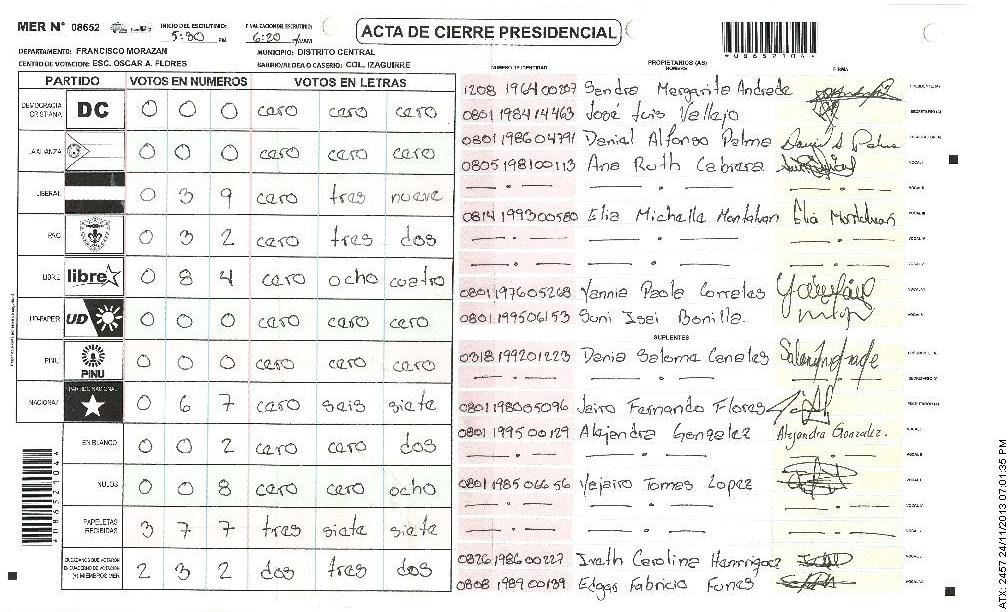 MER N° 08652 INICIO DEL ESCRUTINIO: 5:30 PM FINALIZACION DEL ESCRUTINIO: 6:20 P/AM ACTA DE CIERRE PRESIDENCIAL
DEPARTAMENTO: FRANCISCO MORAZAN MUNICIPIO: DISTRITO CENTRAL
CENTRO DE VOTACION: ESC. OSCAR A. FLORES BARRIO/ALDEA O CASERIO: COL. IZAGUIRRE
PARTIDO VOTOS EN NUMEROS VOTOS EN LETRAS
DEMOCRACIA CRISTIANA DC 0 0 0 cero cero cero
LA ALIANZA 0 0 0 cero cero cero
LIBERAL 0 3 9 cero tres nueve
PAC 0 3 2 cero tres dos
LIBRE libre 0 8 4 cero ocho cuatro
UD-FAPER UD 0 0 0 cero cero cero
PINU PINU 0 0 0 cero cero cero
NACIONAL PARTIDO NACIONAL 0 6 7 cero seis siete
EN BLANCO 0 0 2 cero cero dos
NULOS 0 0 8 cero cero ocho
PAPELETAS RECIBIDAS 3 7 7 tres siete siete
CIUDADANOS QUE VOTARON 2 3 2 dos tres dos
NUMERO DE IDENTIDAD PROPIETARIOS (AS) NOMBRE FIRMA
1208 1964 00207 Sandra Margarita Andrade PRESIDENTE(A)
0801 1984 14463 José Luis Vallejo SECRETARIO(A)
0801 1986 04791 Danial Alfonso Palma
0805 1981 00113 Ana Ruth Cabrera
0814 1993 00580 Elia Michella
0801 1976 05268 Yannia Paola Corrales
0801 1995 06153 Suni Isai Bonilla
SUPLENTES
0318 1992 01223 Dania Saloma Canales
0801 1980 05096 Jairo Fernando Flores
0801 1995 00129 Alejandra Gonzalez Alejandra Gonzalez.
0801 1985 06656 Yejairo Tomes Lopez
0826 1986 00227 Iveth Carolina Henriquez
0808 1989 00139 Edgar Fabricio Funes
*086521044*
ATX-2457 24/11/2013 07:01:35 PM